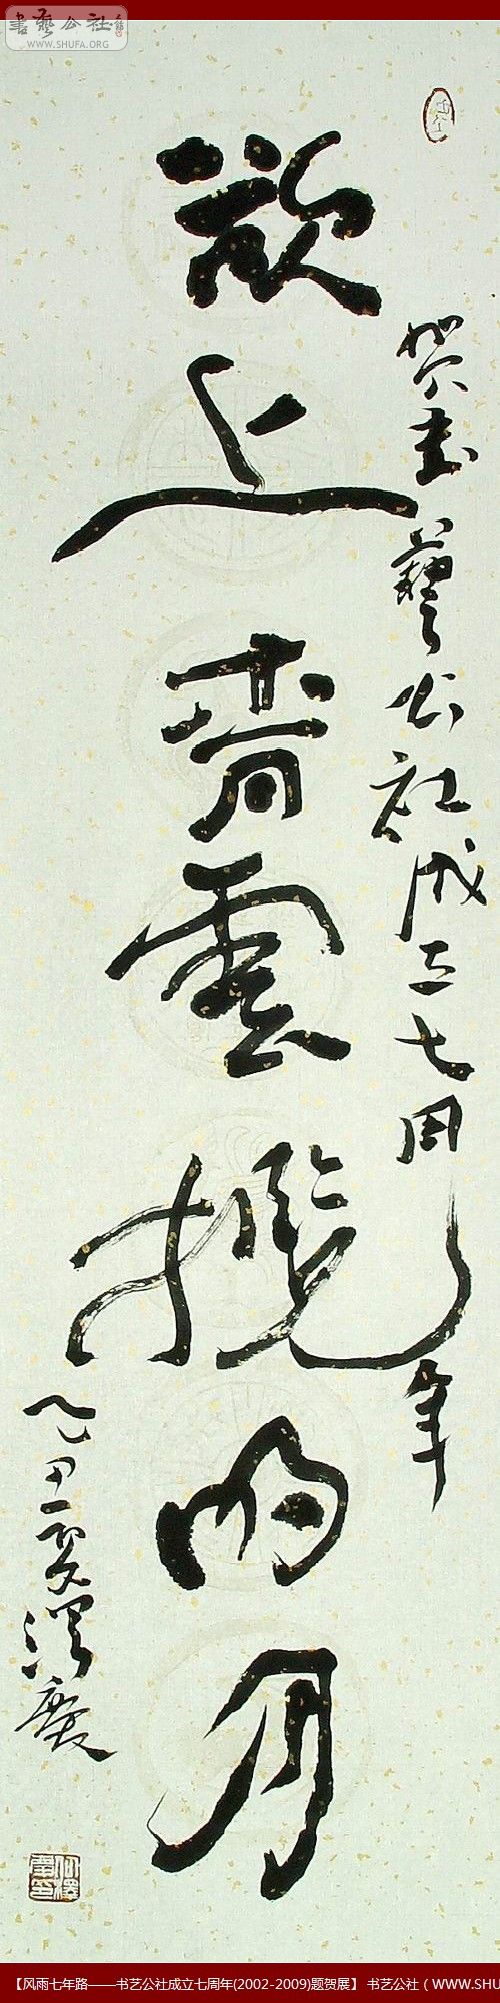 書藝公社
WWW.SHUFA.ORG
賀書藝公社成立七周年
欲上青雲攬明月
己丑夏澤慶
【风雨七年路——书艺公社成立七周年(2002-2009)题贺展】 书艺公社（WWW.SHU